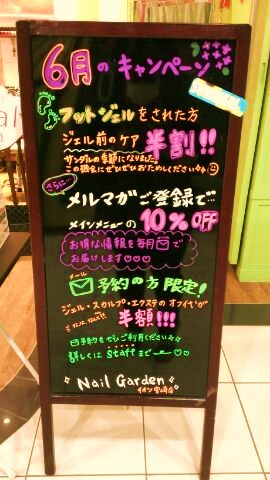 6月のキャンペーン
フットジェルをされた方
ジェル前のケア 半割!!
サンダルの季節になりました
この機会にぜひぜひおためしください
さらに…
メルマガご登録で…
メインメニューの10%OFF
お得な情報を毎月✉で
お届けします♡♡♡
メール
✉予約の方限定!
ジェル・スカルプ・エクステのオフ代が
半額!!!
✉予約もぜひご利用ください
詳しくはstaffまで〜♡♡
Nail Garden
イオン